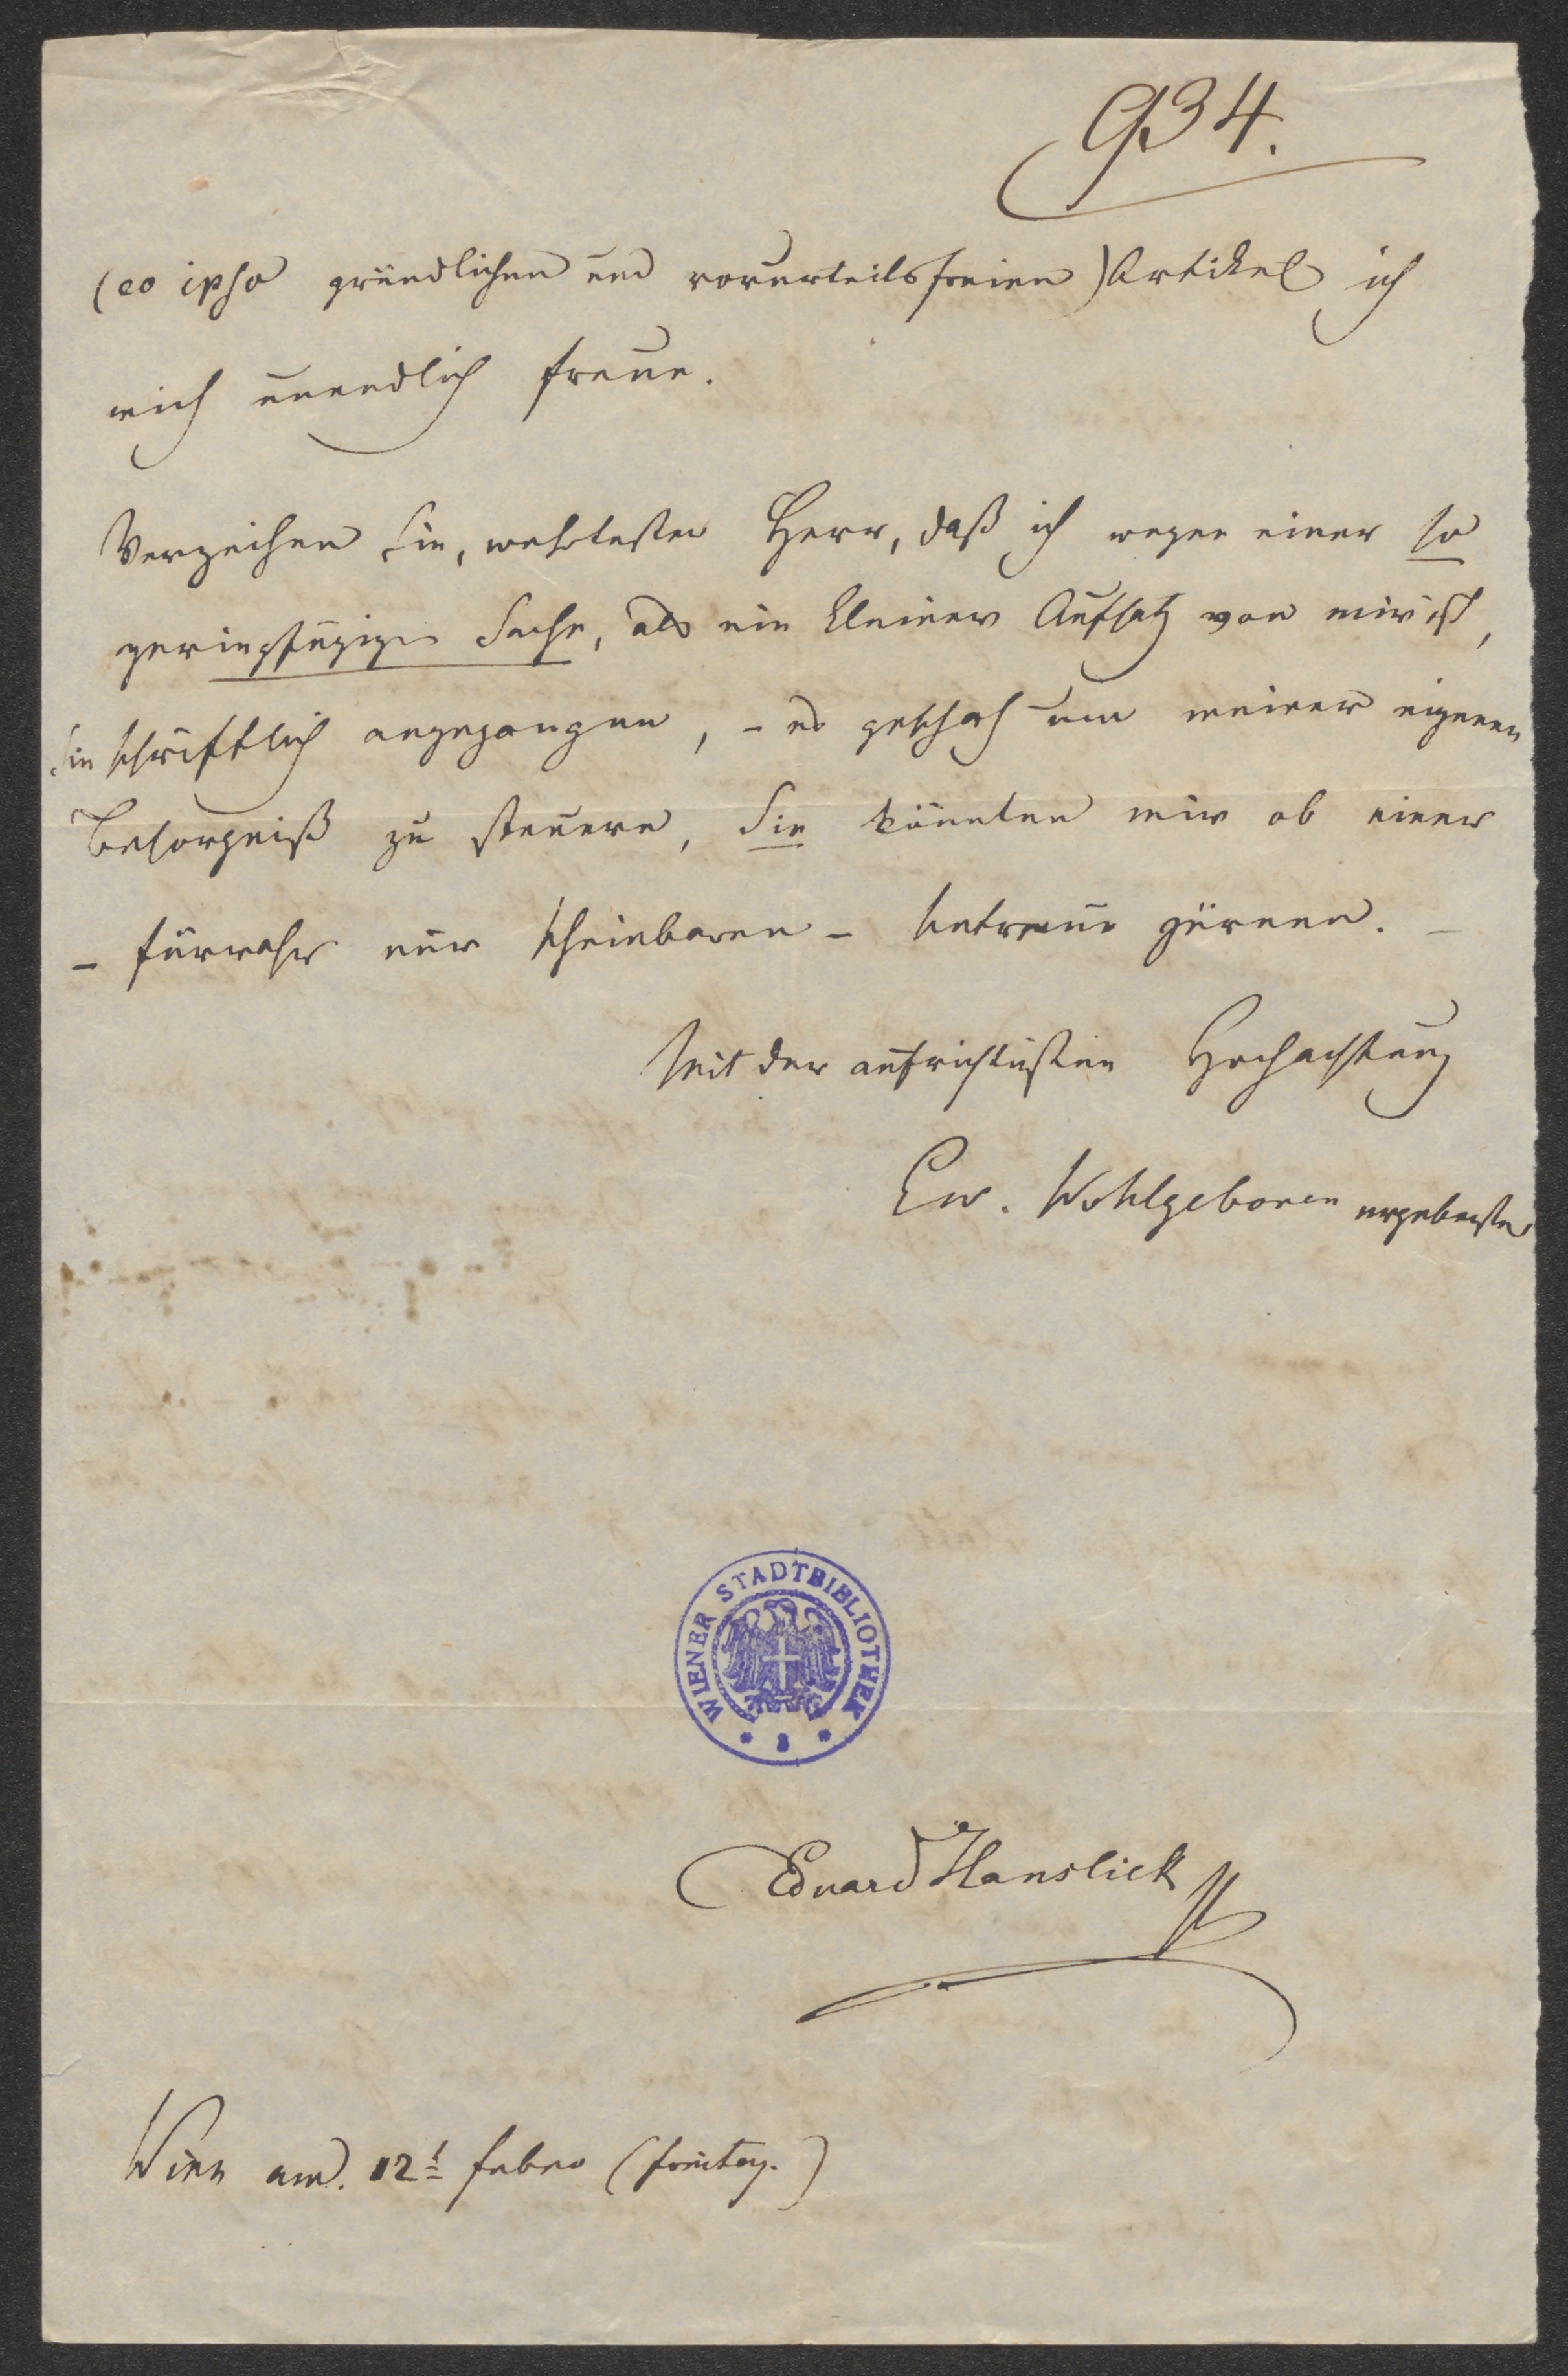 934.
(eo ipso gründlichen und vorurteilsfreien) Artikel ich
mich unendlich freue.
Verzeihen Sie, wehrtester Herr, daß ich wegen einer so
geringfügigen Sache, als ein kleiner Aufsatz von mir ist,
Sie schriftlich angegangen, – es geschah um meiner eigenen
Besorgniß zu steuern, Sie könnten mir ob einer
– fürwahr nur scheinbaren – Untreue zürnen. –
Mit der aufrichtigsten Hochachtung
Ew. Wohlgeboren ergebenster
WIENER STADTBIBLIOTHEK
Eduard Hanslick
Wien am. 12t Febro (Freitag.)